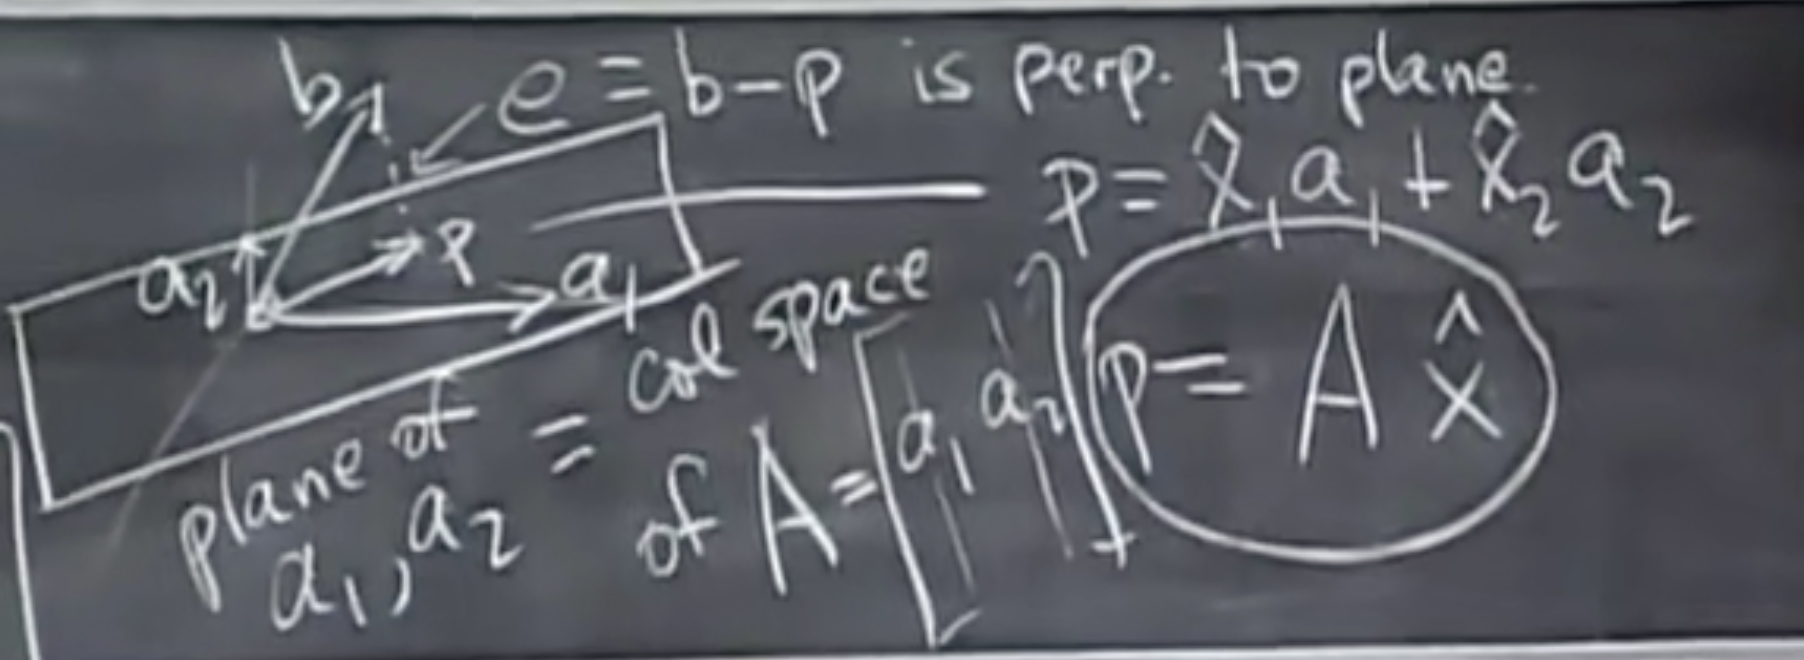 b
e = b-p is perp. to plane.
p = x̂₁a₁ + x̂₂a₂
a₂
p
a₁
plane of a₁, a₂ = col space of A = [a₁ a₂]
p = A x̂